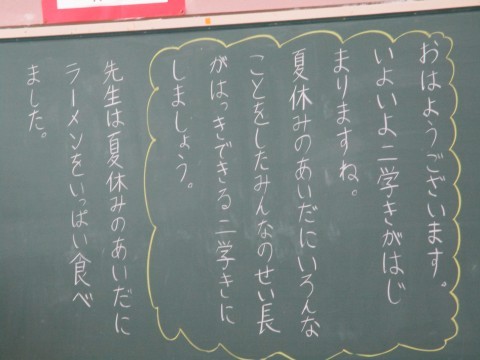 おはようございます。
いよいよ二学きがはじ
まりますね。
夏休みのあいだにいろんな
ことをしたみんなのせい長
がはっきできる二学きに
しましょう。
先生は夏休みのあいだに
ラーメンをいっぱい食べ
ました。